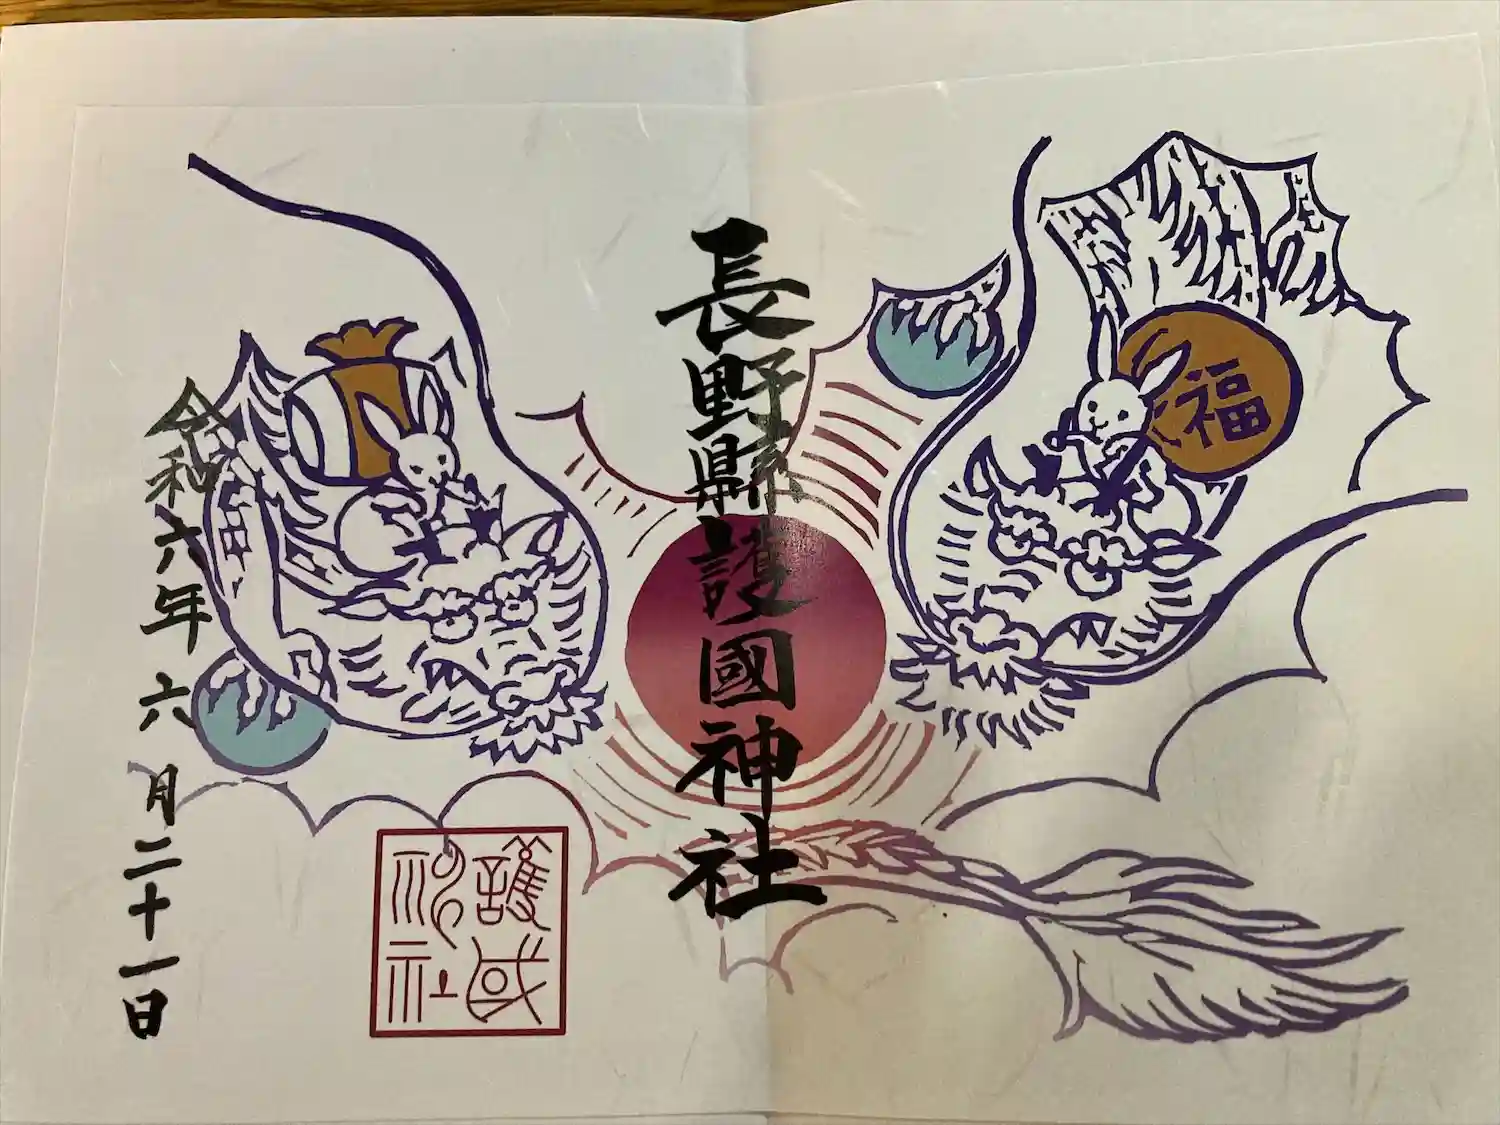 福
長野縣護國神社
令和六年六月二十一日
護國
神社